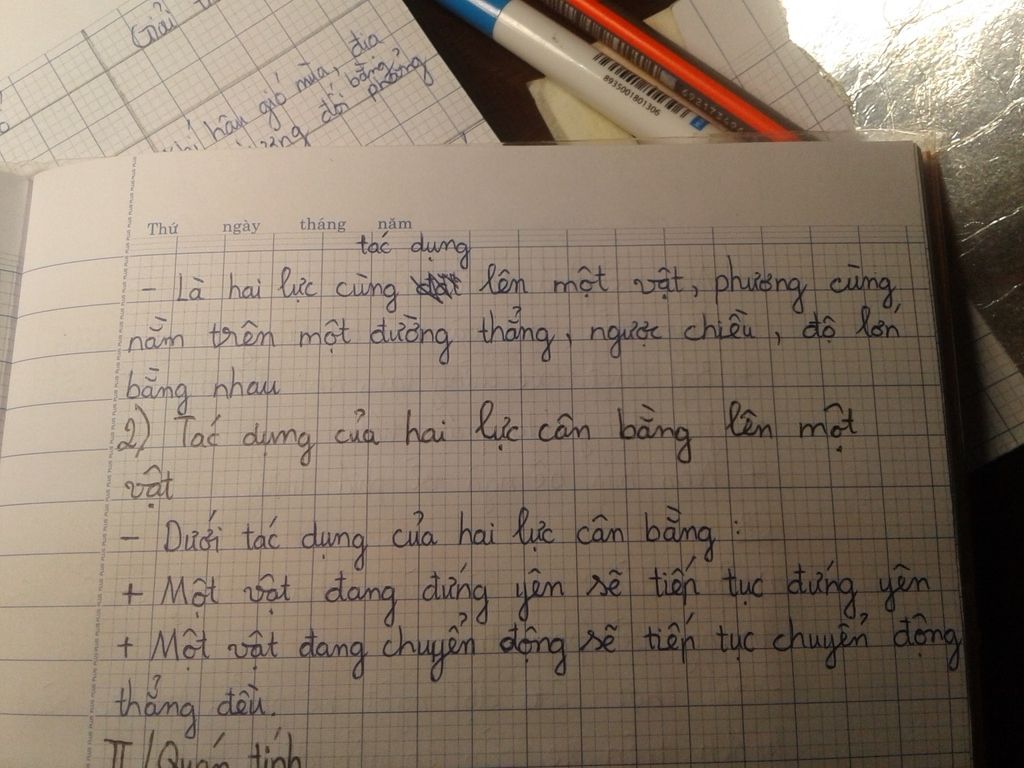 Giải
hậu gió mùa, địa
đồi bằng
phẳng
8935001801306
Thứ ngày tháng năm
tác dụng
- Là hai lực cùng lên một vật, phương cùng
nằm trên một đường thẳng, ngược chiều, độ lớn
bằng nhau
2) Tác dụng của hai lực cân bằng lên một
vật
- Dưới tác dụng của hai lực cân bằng :
+ Một vật đang đứng yên sẽ tiếp tục đứng yên
+ Một vật đang chuyển động sẽ tiếp tục chuyển động
thẳng đều.
II/ Quán tính